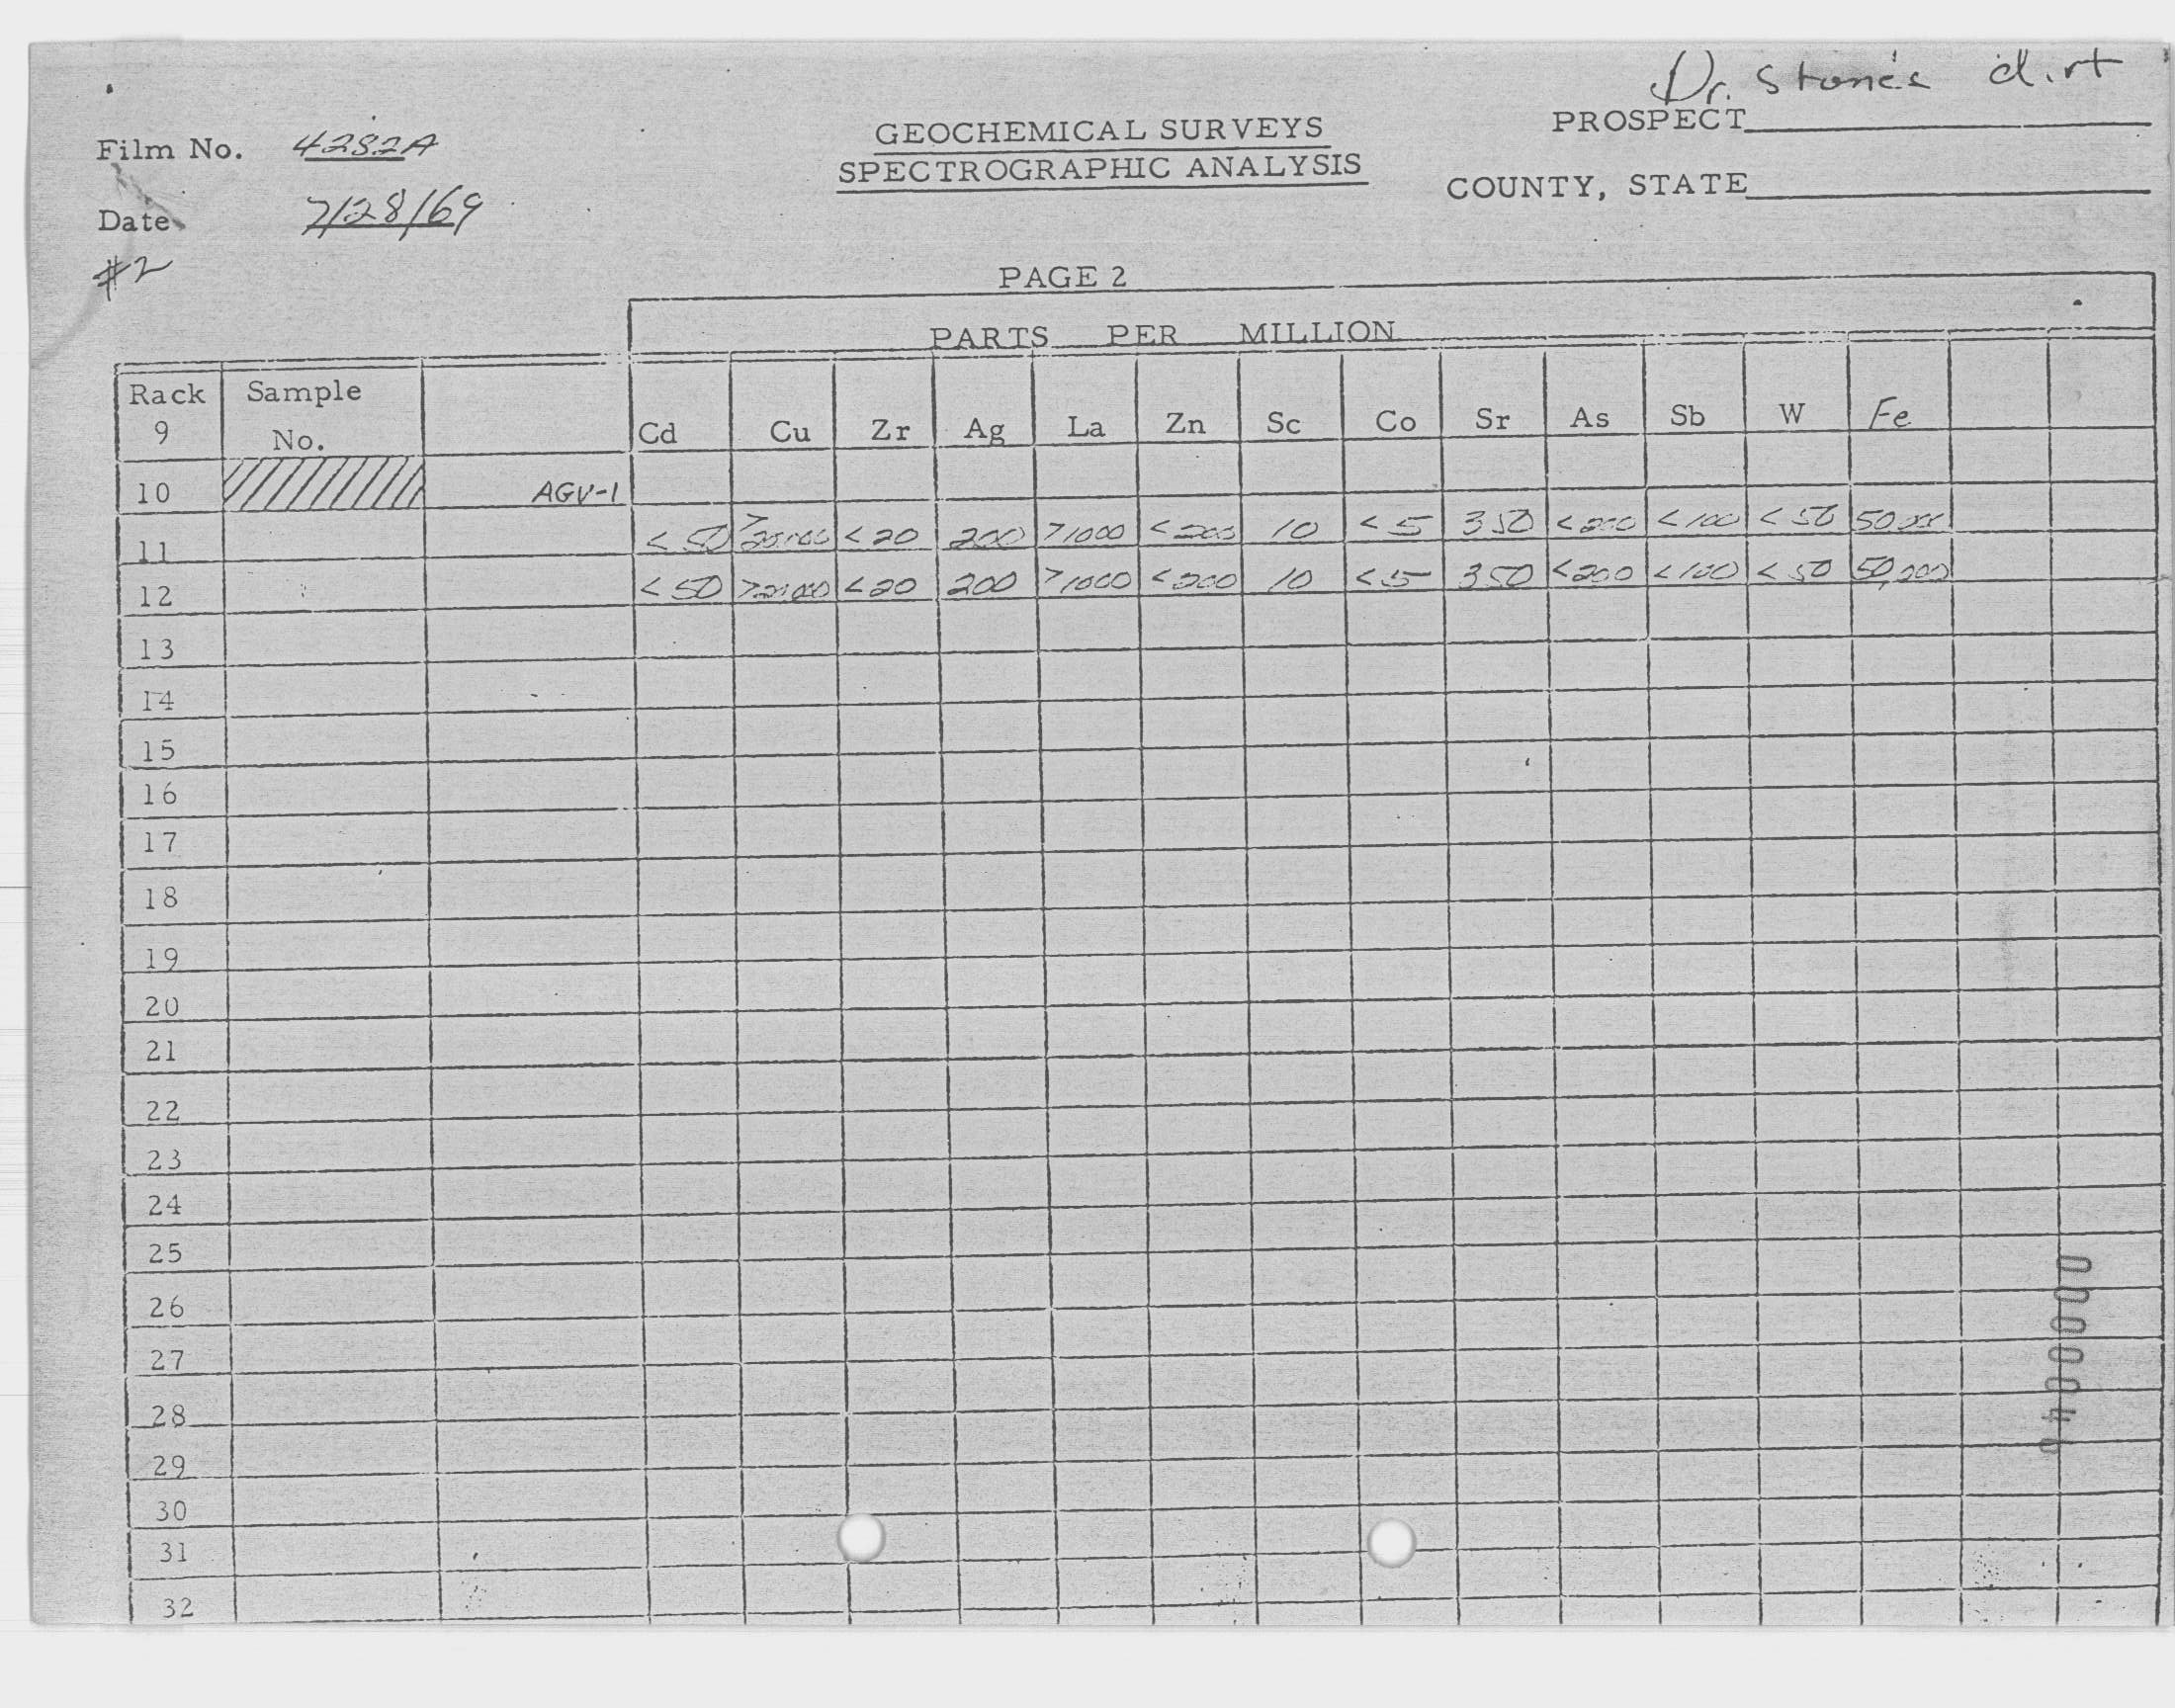 Dr. Stone's dirt
Film No. 4282A
GEOCHEMICAL SURVEYS
SPECTROGRAPHIC ANALYSIS
PROSPECT
COUNTY, STATE
Date 7/28/69
#2
PAGE 2
PARTS PER MILLION
Rack 9 Sample No. Cd Cu Zr Ag La Zn Sc Co Sr As Sb W Fe
10 AGV-1
11 <50 >20,000 <20 200 >1000 <200 10 <5 350 <200 <100 <50 50,000
12 <50 >20,000 <20 200 >1000 <200 10 <5 350 <200 <100 <50 50,000
13
14
15
16
17
18
19
20
21
22
23
24
25
26
27
28
29
30
31
32